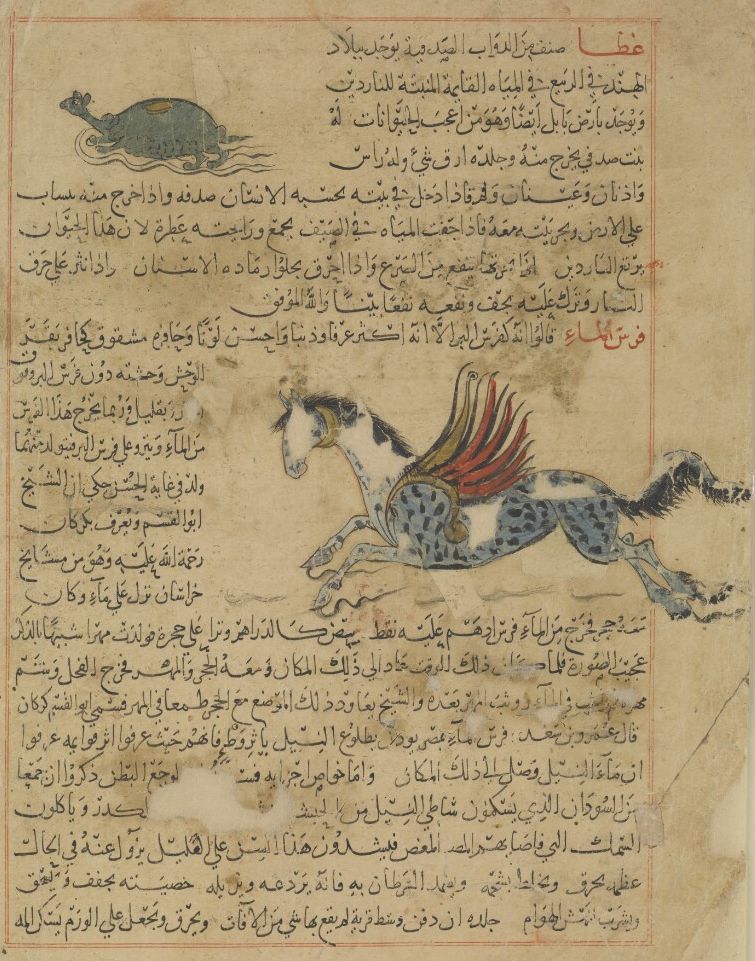 غطا صنف من الدواب الصدفية يوجد ببلاد
الهند في الربيع في المياه القايمة المنبتة للناردين
ويوجد بارض بابل ايضا وهو من اعجب الحيوانات له
بيت صدفي يخرج منه وجلده ارق شيء وله راس
واذنان وعينان وفم فاذا دخل في بيته يحسبه الانسان صدفه واذا خرج منه ينساب
على الارض ويجر بيته معه فاذا جفت المياه في الصيف يجمع ورايحته عطرة لان هذا الحيوان
يرتع الناردين اذا بخر بها ينفع من الصرع واذا احرق يجلو رماده الاسنان واذا نثر على حرق
النار وترك عليه يجف ونفعه نفعا بينا والله الموفق
فرس الماء قالوا انه كفرس البر الا انه اكثر عرفا وذنبا واحسن لونا وحافره مشقوق كحافر بقر
الوحش وجثته دون فرس البر وفوق
بقليل وربما يخرج هذا الفرس
من الماء وينزو على فرس البر فيتولد منهما
ولد في غاية الحسن حكي ان الشيخ
ابو القسم ويعرف بكركان
رحمة الله عليه وهو من مشايخ
خراسان نزل على ماء وكان
معه حجر فخرج من الماء فرس ادهم عليه نقط بيض كالدراهم ونزا على حجرة فولدت مهرا شبيها بالذكر
عجيب الصورة فلما كان ذلك الوقت عاد الى ذلك المكان ومعه الحجر والمهر فخرج الفحل وشم
مهره في الماء ووثب المهر بعده والشيخ يعاود ذلك الموضع مع الحجر طمعا في المهر فسمي ابو القسم كركان
قال عمرو بن سعد فرس الماء بمصر يوذن بطلوع النيل باثر وطئه فانهم حيث عرفوا اثر قوايمه عرفوا
ان ماء النيل وصل الى ذلك المكان واما خواص اجزايه لوجع البطن ذكروا ان جمعا
من السودان الذين يسكنون شاطي النيل من الحبش الكدر وياكلون
السمك الني فاصابهم المغص فيشدون هذا السن على العليل يزول عنه في الحال
عظمه يحرق ويخلط بشحمه ويضمد السرطان به فانه يردعه ويزيله خصيته تجفف وتسحق
ويشرب لنهش الهوام جلده ان دفن وسط قرية لم يقع بها شي من الافات ويحرق ويجعل على الورم يسكن المه